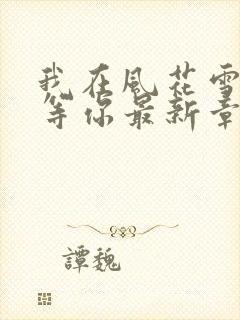 我在風花雪
等你最新章
譚魏